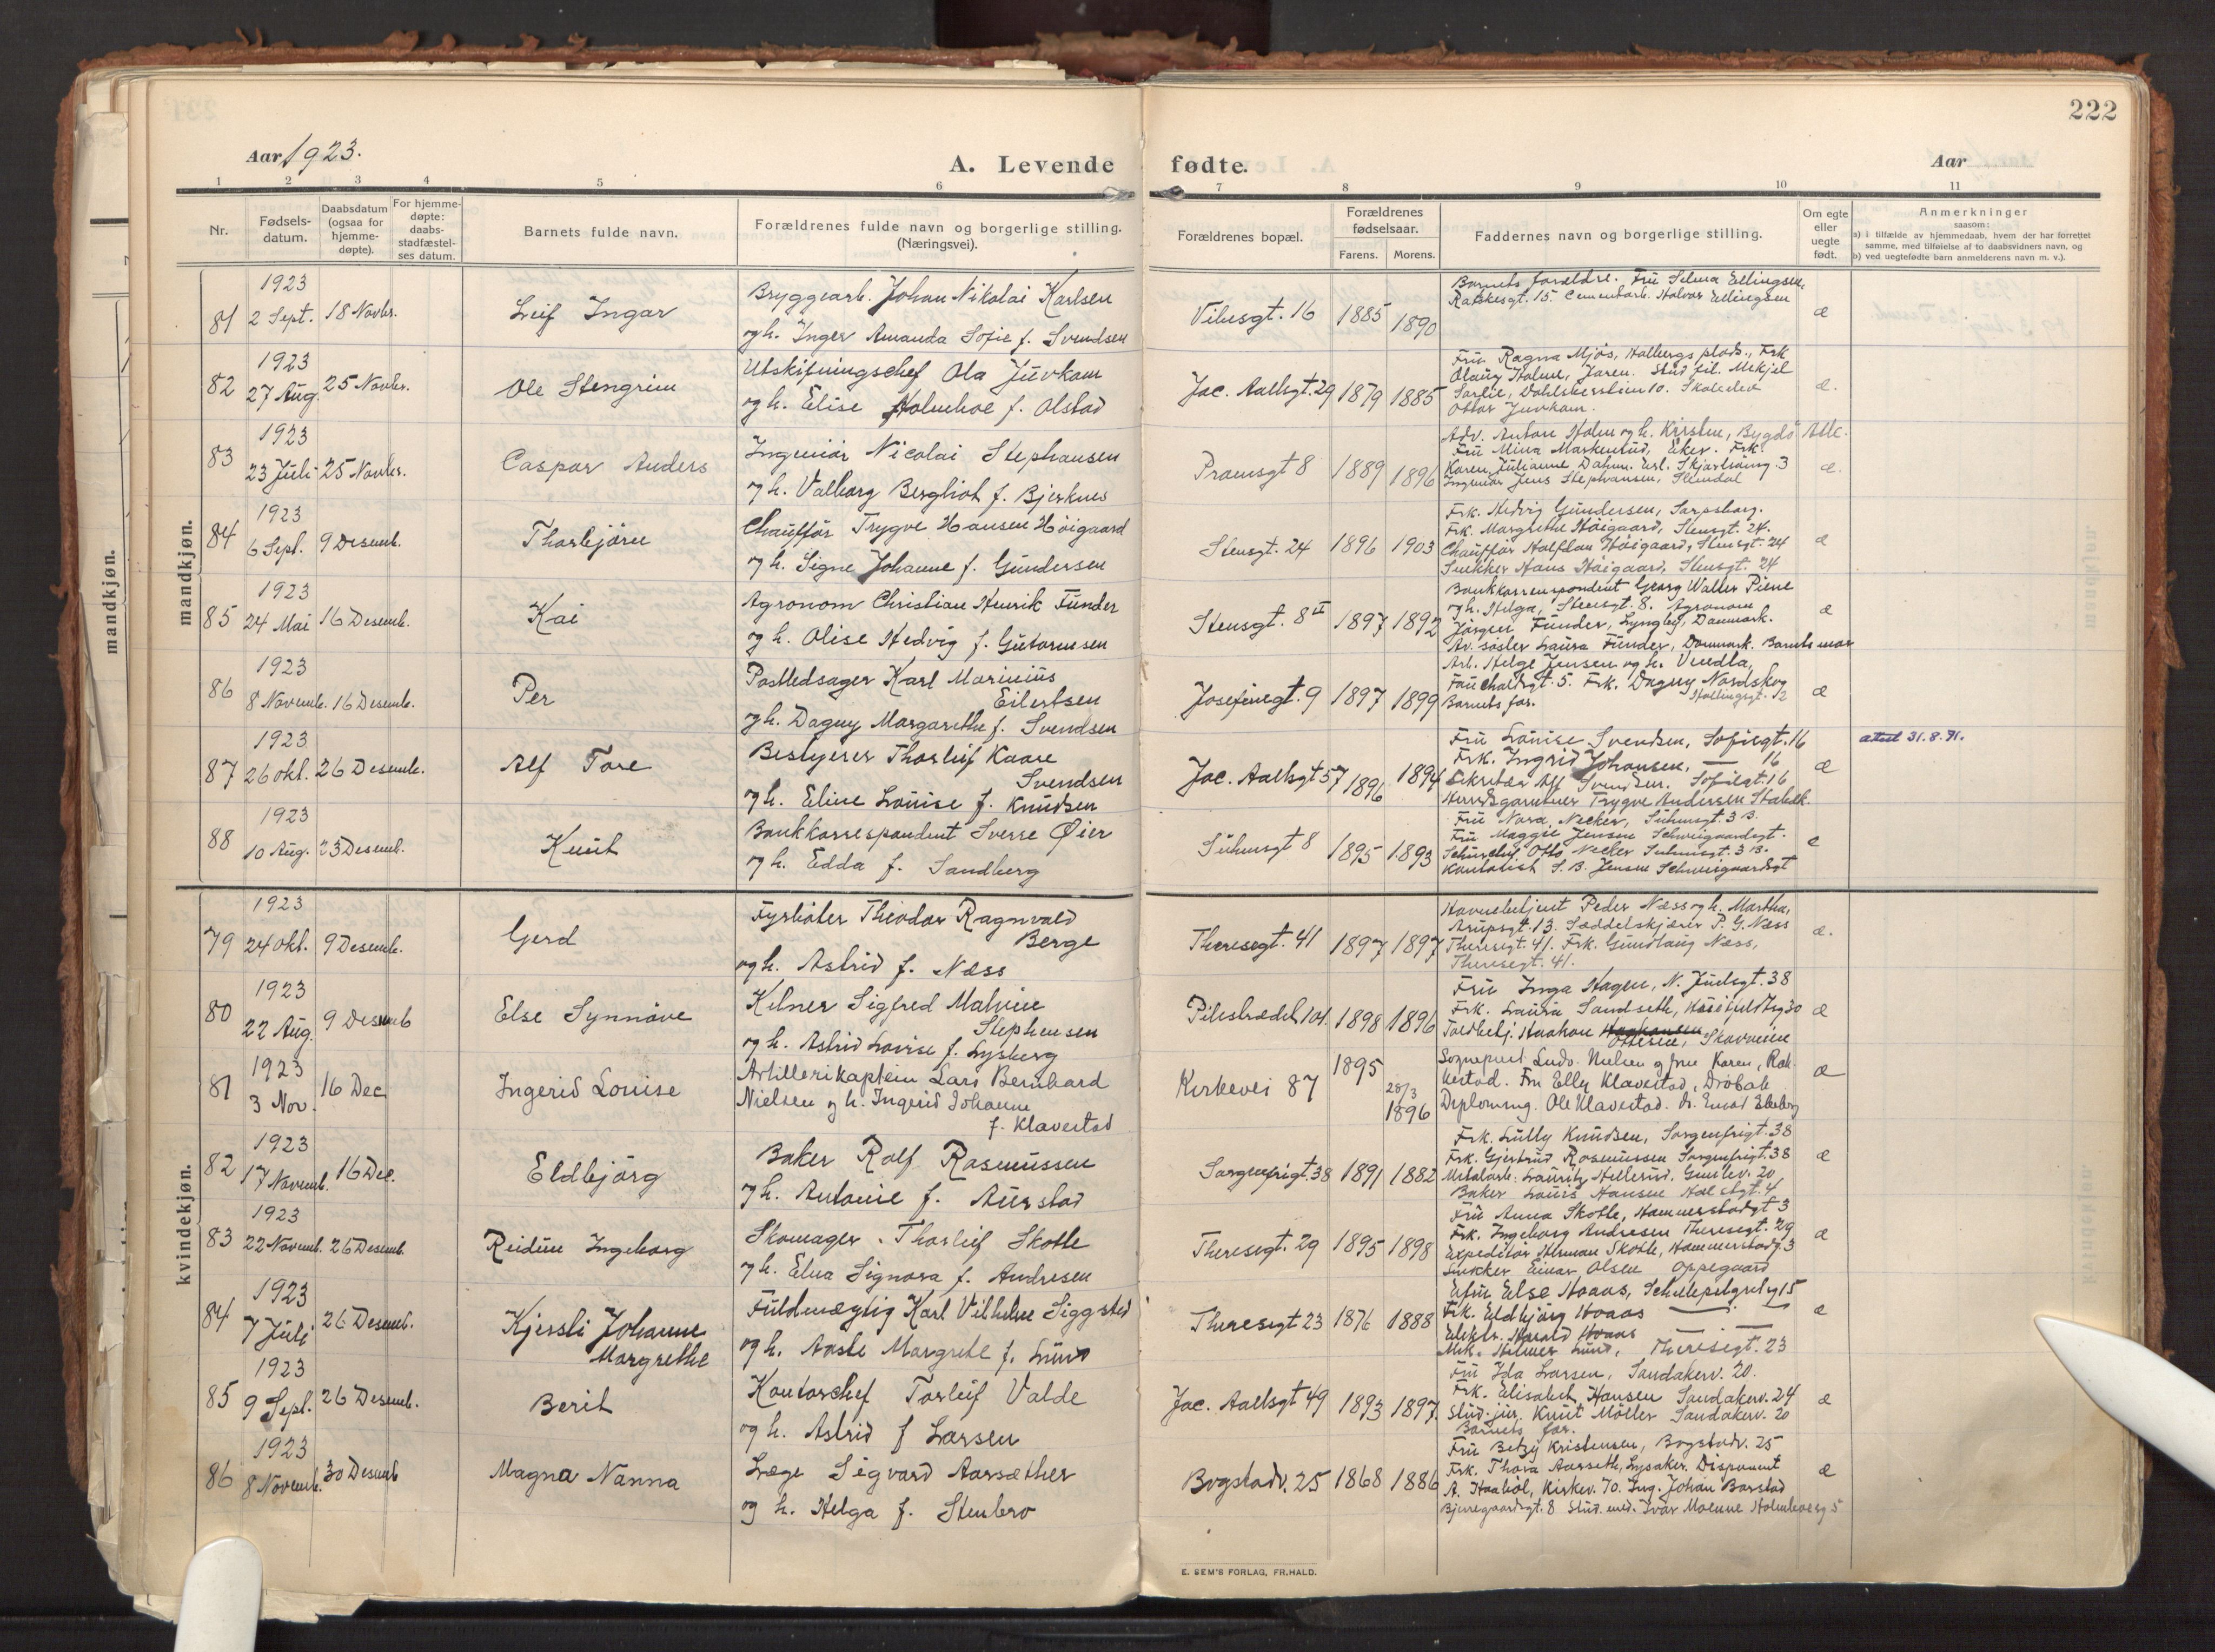 222
Aar 1923.
A. Levende
fødte.
Aar
1 2 3 4 5 6
7 8 9 10 11
Nr.
Fødsels-
datum.
Daabsdatum
(ogsaa for
hjemme-
døpte).
For hjemme-
døpte:
daabs-
stadfæstel-
ses datum.
Barnets fulde navn.
Forældrenes fulde navn og borgerlige stilling.
(Næringsvei).
Forældrenes bopæl.
Forældrenes
fødselsaar.
Farens. Morens.
Faddernes navn og borgerlige stilling.
Om egte
eller
uegte
født.
Anmerkninger
saasom:
a) i tilfælde av hjemmedaab, hvem der har forrettet
samme, med tilføielse af to daabsvidners navn, og
b) ved uegtefødte barn anmelderens navn m. v.).
mandkjøn.
mandkjøn.
1923
81 2 Sept. 18 Novbr. Leif Ingar
Bryggearb. Johan Nikolai Karlsen
og h. Inger Amanda Sofie f. Svendsen
Vibesgt. 16 1885 1890
Barnets forældre. Fru Selma Ellingsen,
15. Cementarb. Halvor Ellingsen
æ
1923
82 27 Aug. 25 Novbr. Ole Stengrim
Utskiftningschef Ola Juvkam
og h. Elise Holmboe f. Olstad
Jac. Aallsgt. 29 1879 1885
Fru Ragna Mjös, Halbergs plads., Frk
Olaug Holme, Jaren. Stud. fil. Mekjel
10. Skoleelev
Ottar Juvkam.
æ.
1923
83 23 Juli 25 Novbr. Caspar Anders
Ingeniör Nicolai Stephansen
og h. Valborg Bergliot f. Bjerknes
Pramsgt 8 1889 1896
Adv. Anton Holm og h. Kirsten, Bygdö Alle.
Fru Mina Markerud, Eker. Frk.
Karen Julianne Dahm. 3
Ingeniör Jens Stephansen,
æ.
1923
84 6 Sept. 9 Desemb. Thorbjörn
Chaufför Trygve Hansen Höigaard
og h. Signe Johanne f. Gundersen
Stensgt. 24 1896 1903
Frk. Hedvig Gundersen, Sarpsborg.
Frk. Margrethe Höigaard, Stensgt. 24.
Chaufför Halfdan Höigaard, Stensgt. 24
Snekker Hans Höigaard, Stensgt. 24
æ
1923
85 24 Mai 16 Desemb. Kai
Agronom Christian Henrik Funder
og h. Olise Hedvig f. Gutormsen
Stensgt. 8 II 1897 1892
Bankkorrespondent Georg Walter Piene
og h. Helga, Stensgt. 8. Agronom
Jörgen Funder, Lyngby, Danmark.
Laura Funder, Danmark. Barnets mor
æ
1923
86 8 Novemb. 16 Desemb. Per
Postledsager Karl Marinius
Eilertsen
og h. Dagny Margarethe f. Svendsen
Josefinegt. 9 1897 1899
Arb. Helge Jensen og h. Vendla,
Fauchaldsgt. 5. Frk. Dagny Nordskog
Hallingsgt. 12
Barnets far.
æ
1923
87 26 Okt. 26 Desemb. Alf Tore
Bestyrer Thorleif Kaare
Svendsen
og h. Eline Louise f. Knudsen
Jac. Aallsgt 57 1896 1894
Fru Louise Svendsen, Sofiegt. 16
Frk. Ingrid Johansen, — 16
Sekretær Alf Svendsen. Sofiegt. 16
Herredsgartner Trygve Andersen Stabek.
æ
attest 31.8.91.
1923
88 10 Aug. 23 Desemb. Knut
Bankkorrespondent Sverre Øier
og h. Edda f. Sandberg
Suhmsgt 8 1895 1893
Fru Nora Necker, Suhmsgt. 3 B.
Fru Maggie Jensen Schweigaardsgt.
Otto Necker Suhmsgt. 3 B.
Kontorist S. B. Jensen Schweigaardsgt
kvindekjøn.
1923
79 24 Okt. 9 Desemb. Gerd
Fyrböter Theodor Ragnvald
Berge
og h. Astrid f. Næss
Theresegt. 41 1897 1897
Havnebetjent Peder Næss og h. Martha,
Arupsgt. 13. Sæddelskjærer P. G. Næss
Theresegt. 41. Frk. Gundlaug Næss,
Theresegt. 41.
æ.
1923
80 22 Aug. 9 Desemb Else Synnöve
Kelner Sigfred Malvin
Stephensen
og h. Astrid Lovise f. Lysberg
Pilestrædet 104. 1898 1896
Fru Inga Hagen, N. Juelsgt. 38
Frk. Laura Sandseth, 30
Toldbetj. Haakon Haakonsen Ottesen,
æ
1923
81 3 Nov. 16 Dec Ingerid Louise
Artillerikaptein Lars Bernhard
Nielsen og h. Ingerid Johanne
f. Klavestad
Kirkevei 87 1895 28/3 1896
Sogneprest Ludv. Nielsen og frue Karen, Rak-
kestad. Fru Elly Klavestad, Dröbak
Diploming. Ole Klavestad.
æ
1923
82 17 Novemb. 16 Dec. Eldbjörg
Baker Rolf Rasmussen
og h. Antonie f. Aurstad
Sorgenfrigt. 38 1891 1882
Frk. Lully Knudsen, Sorgenfrigt. 38
Frk. Gjertrud Rasmussen Sorgenfrigt. 38
Metalarb. Lauritz Hellerud, Gunlev. 20
Baker Louis Hansen 4
æ
1923
83 22 Novemb. 26 Desemb. Reidun Ingeborg
Skomager Thorleif Skotte
og h. Elna Signora f. Andresen
Theresegt. 29 1895 1898
Fru Anna Skotte, Hammerstadgt 3
Frk. Ingeborg Andresen Theresegt. 29
Expeditör Herman Skotte, Hammerstadg. 3
Snekker Einar Olsen Oppegaard
æ
1923
84 7 Juli 26 Desemb. Kjersti Johanne
Margrethe
Fuldmægtig Karl Vilhelm Siggsted
og h. Aaste Margrete f. Lund
Theresegt 23 1876 1888
Else Hoaas, 15
Frk. Eldbjörg Hoaas —
Elektr. Harald Hoaas —
Mek. Hilmer Lund, Theresegt. 23
æ
1923
85 9 Sept. 26 Desemb. Berit
Kontorchef Torleif Valde
og h. Astrid f Larsen
Jac. Aallsgt 49 1893 1897.
Fru Ida Larsen, Sandakerv. 20.
Frk. Elisabeth Hansen Sandakerv. 24
Stud. jur. Knut Möller Sandakerv. 20
Barnets far.
æ
1923
86 8 Novemb. 30 Desemb Magna Nanna
Læge Sigvard Aarsæther
og h. Helga f. Stenbro
Bogstadv. 25 1868 1886
Fru Betzy Kristensen, Bogstadv. 25
Frk. Thora Aarseth, Lysaker. Disponent
A. Haabøl, Kirkev. 70. Ing. Johan Barstad
Bjerregaardsgt. 8 Stud. med. Ivar
æ
E. SEM'S FORLAG, FR.HALD.